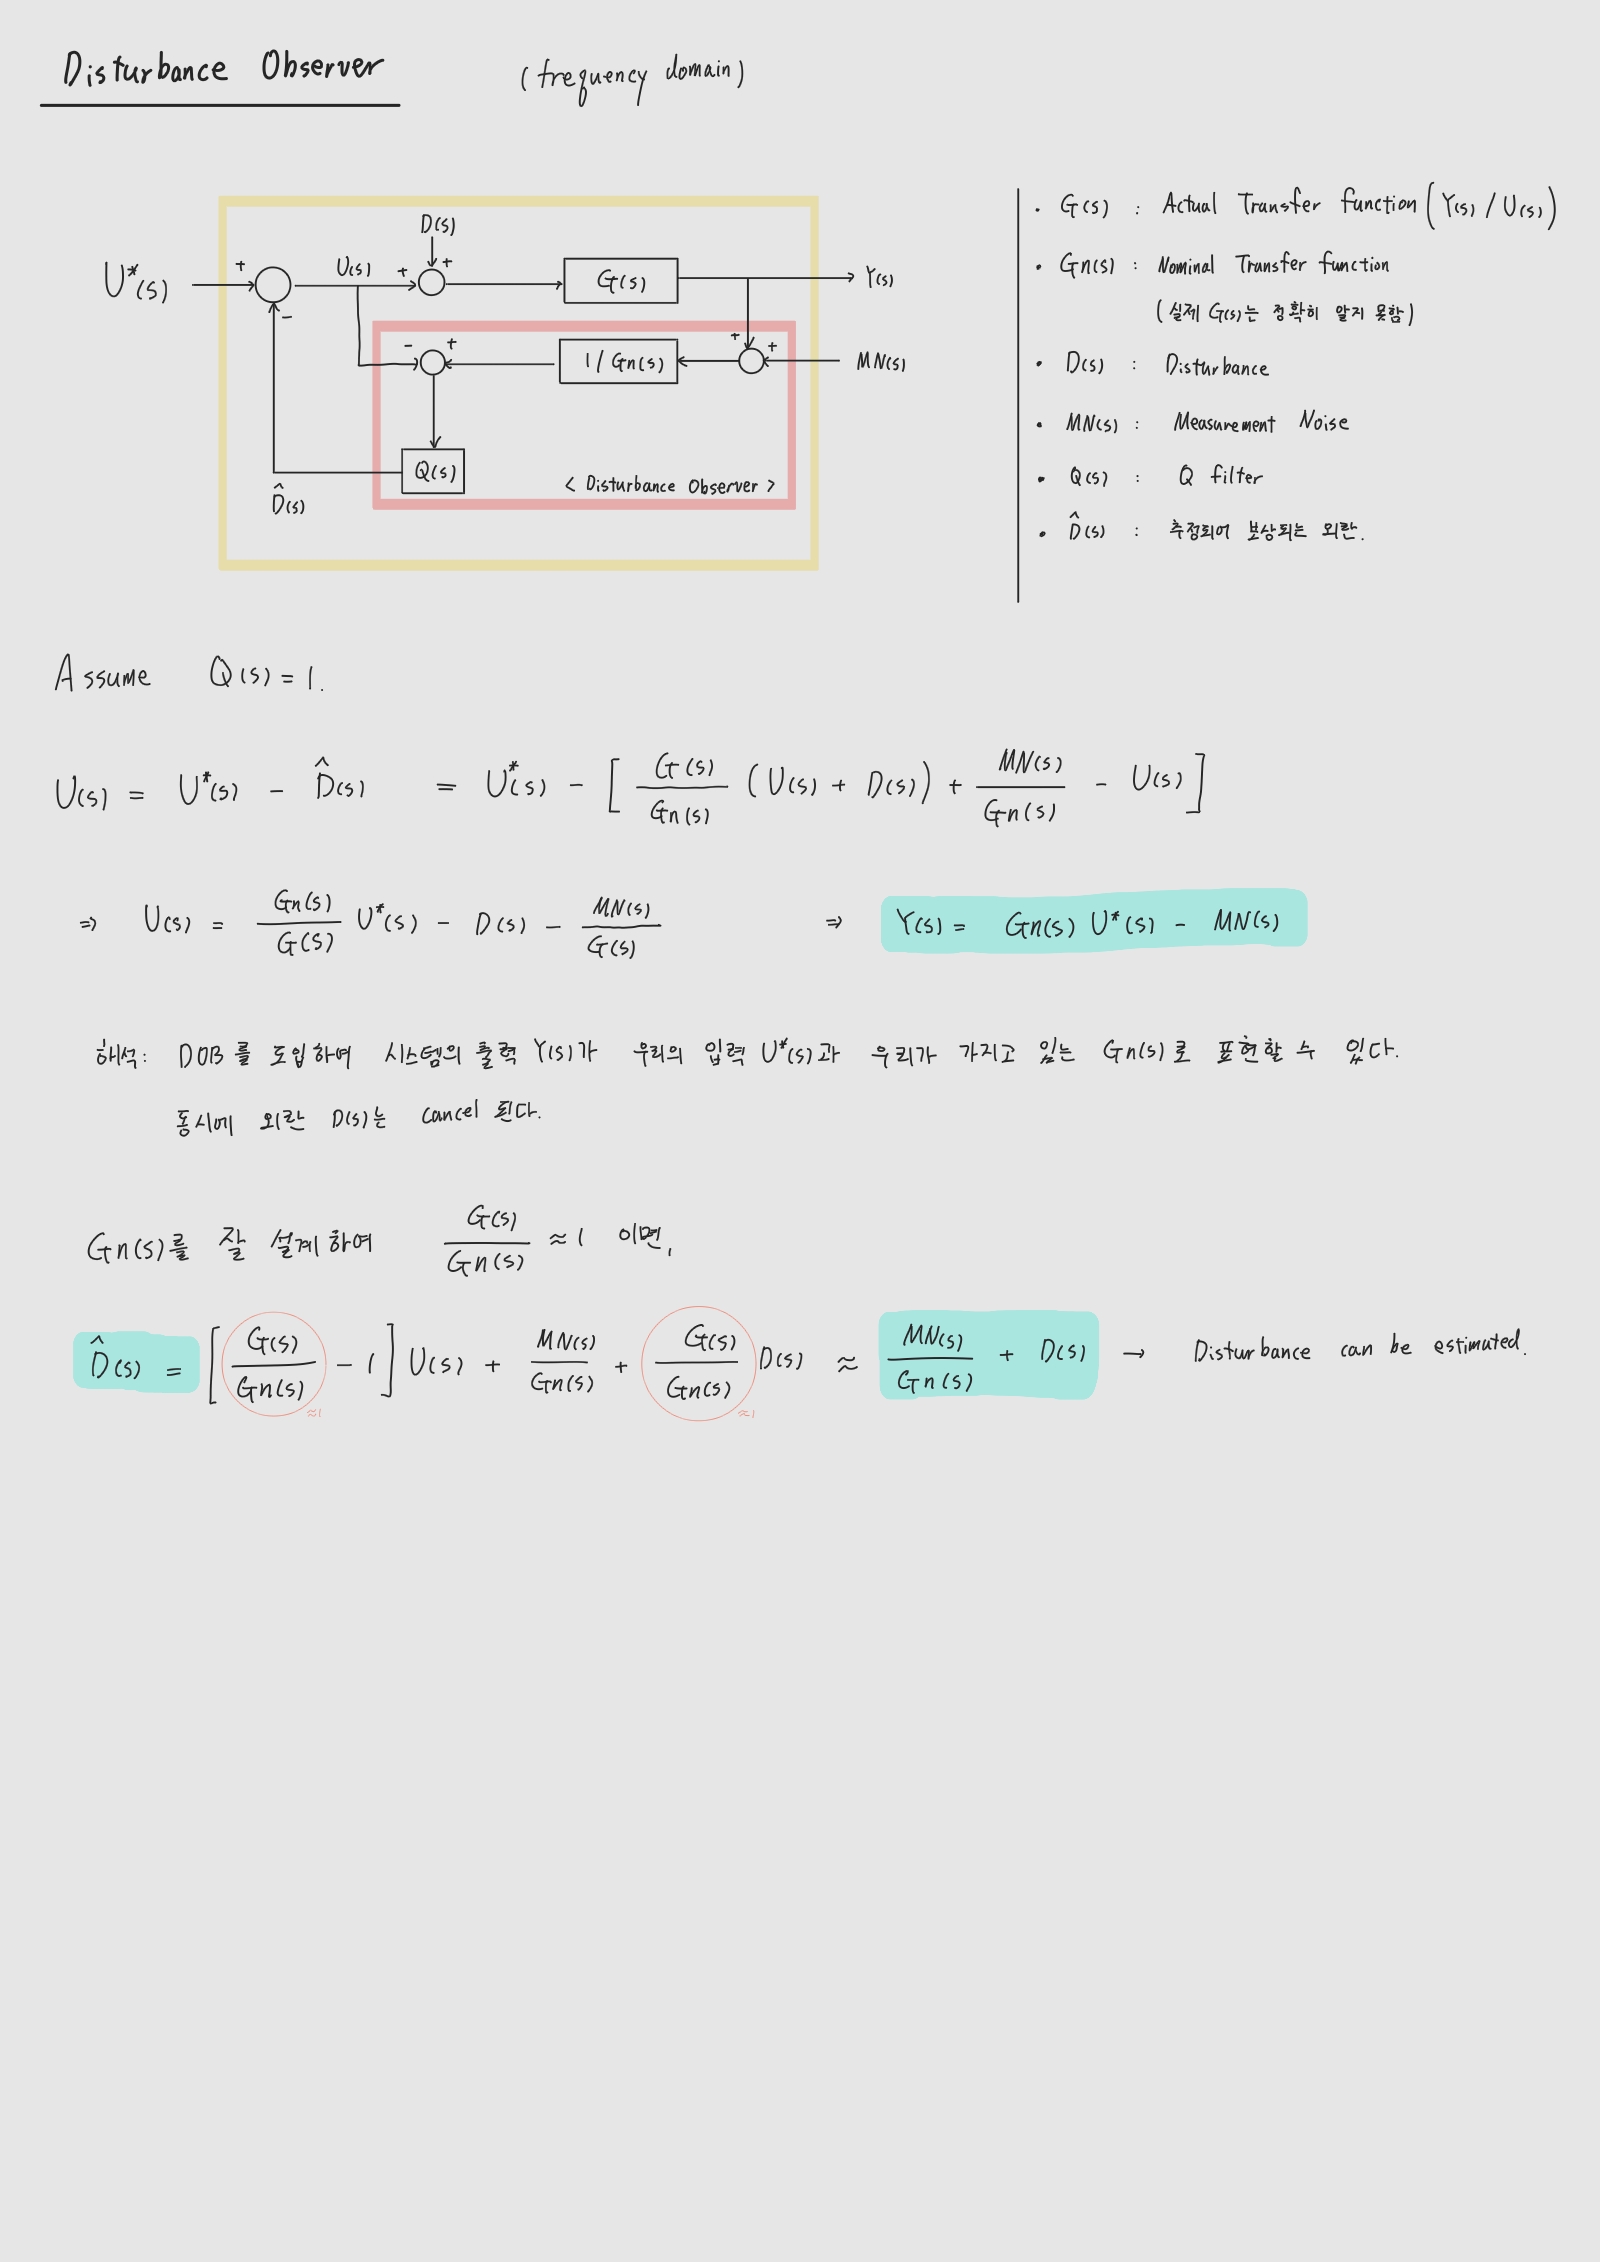 Disturbance Observer (frequency domain)
D(s)
U*(s) + − U(s) + + G(s) Y(s)
− + 1 / Gn(s) + + MN(s)
Q(s)
D̂(s)
< Disturbance Observer >
· G(s) : Actual Transfer function (Y(s) / U(s))
· Gn(s) : Nominal Transfer function
(실제 G(s)는 정확히 알지 못함)
· D(s) : Disturbance
· MN(s) : Measurement Noise
· Q(s) : Q filter
· D̂(s) : 추정되어 보상되는 외란.
Assume Q(s) = 1.
U(s) = U*(s) − D̂(s) = U*(s) − [ G(s)/Gn(s) (U(s) + D(s)) + MN(s)/Gn(s) − U(s) ]
⇒ U(s) = Gn(s)/G(s) U*(s) − D(s) − MN(s)/G(s) ⇒ Y(s) = Gn(s) U*(s) − MN(s)
해석: DOB를 도입하여 시스템의 출력 Y(s)가 우리의 입력 U*(s)과 우리가 가지고 있는 Gn(s)로 표현할 수 있다.
동시에 외란 D(s)는 cancel 된다.
Gn(s)를 잘 설계하여 G(s)/Gn(s) ≈ 1 이면,
D̂(s) = [ G(s)/Gn(s) − 1 ] U(s) + MN(s)/Gn(s) + G(s)/Gn(s) D(s) ≈ MN(s)/Gn(s) + D(s) → Disturbance can be estimated.
≈1 ≈1